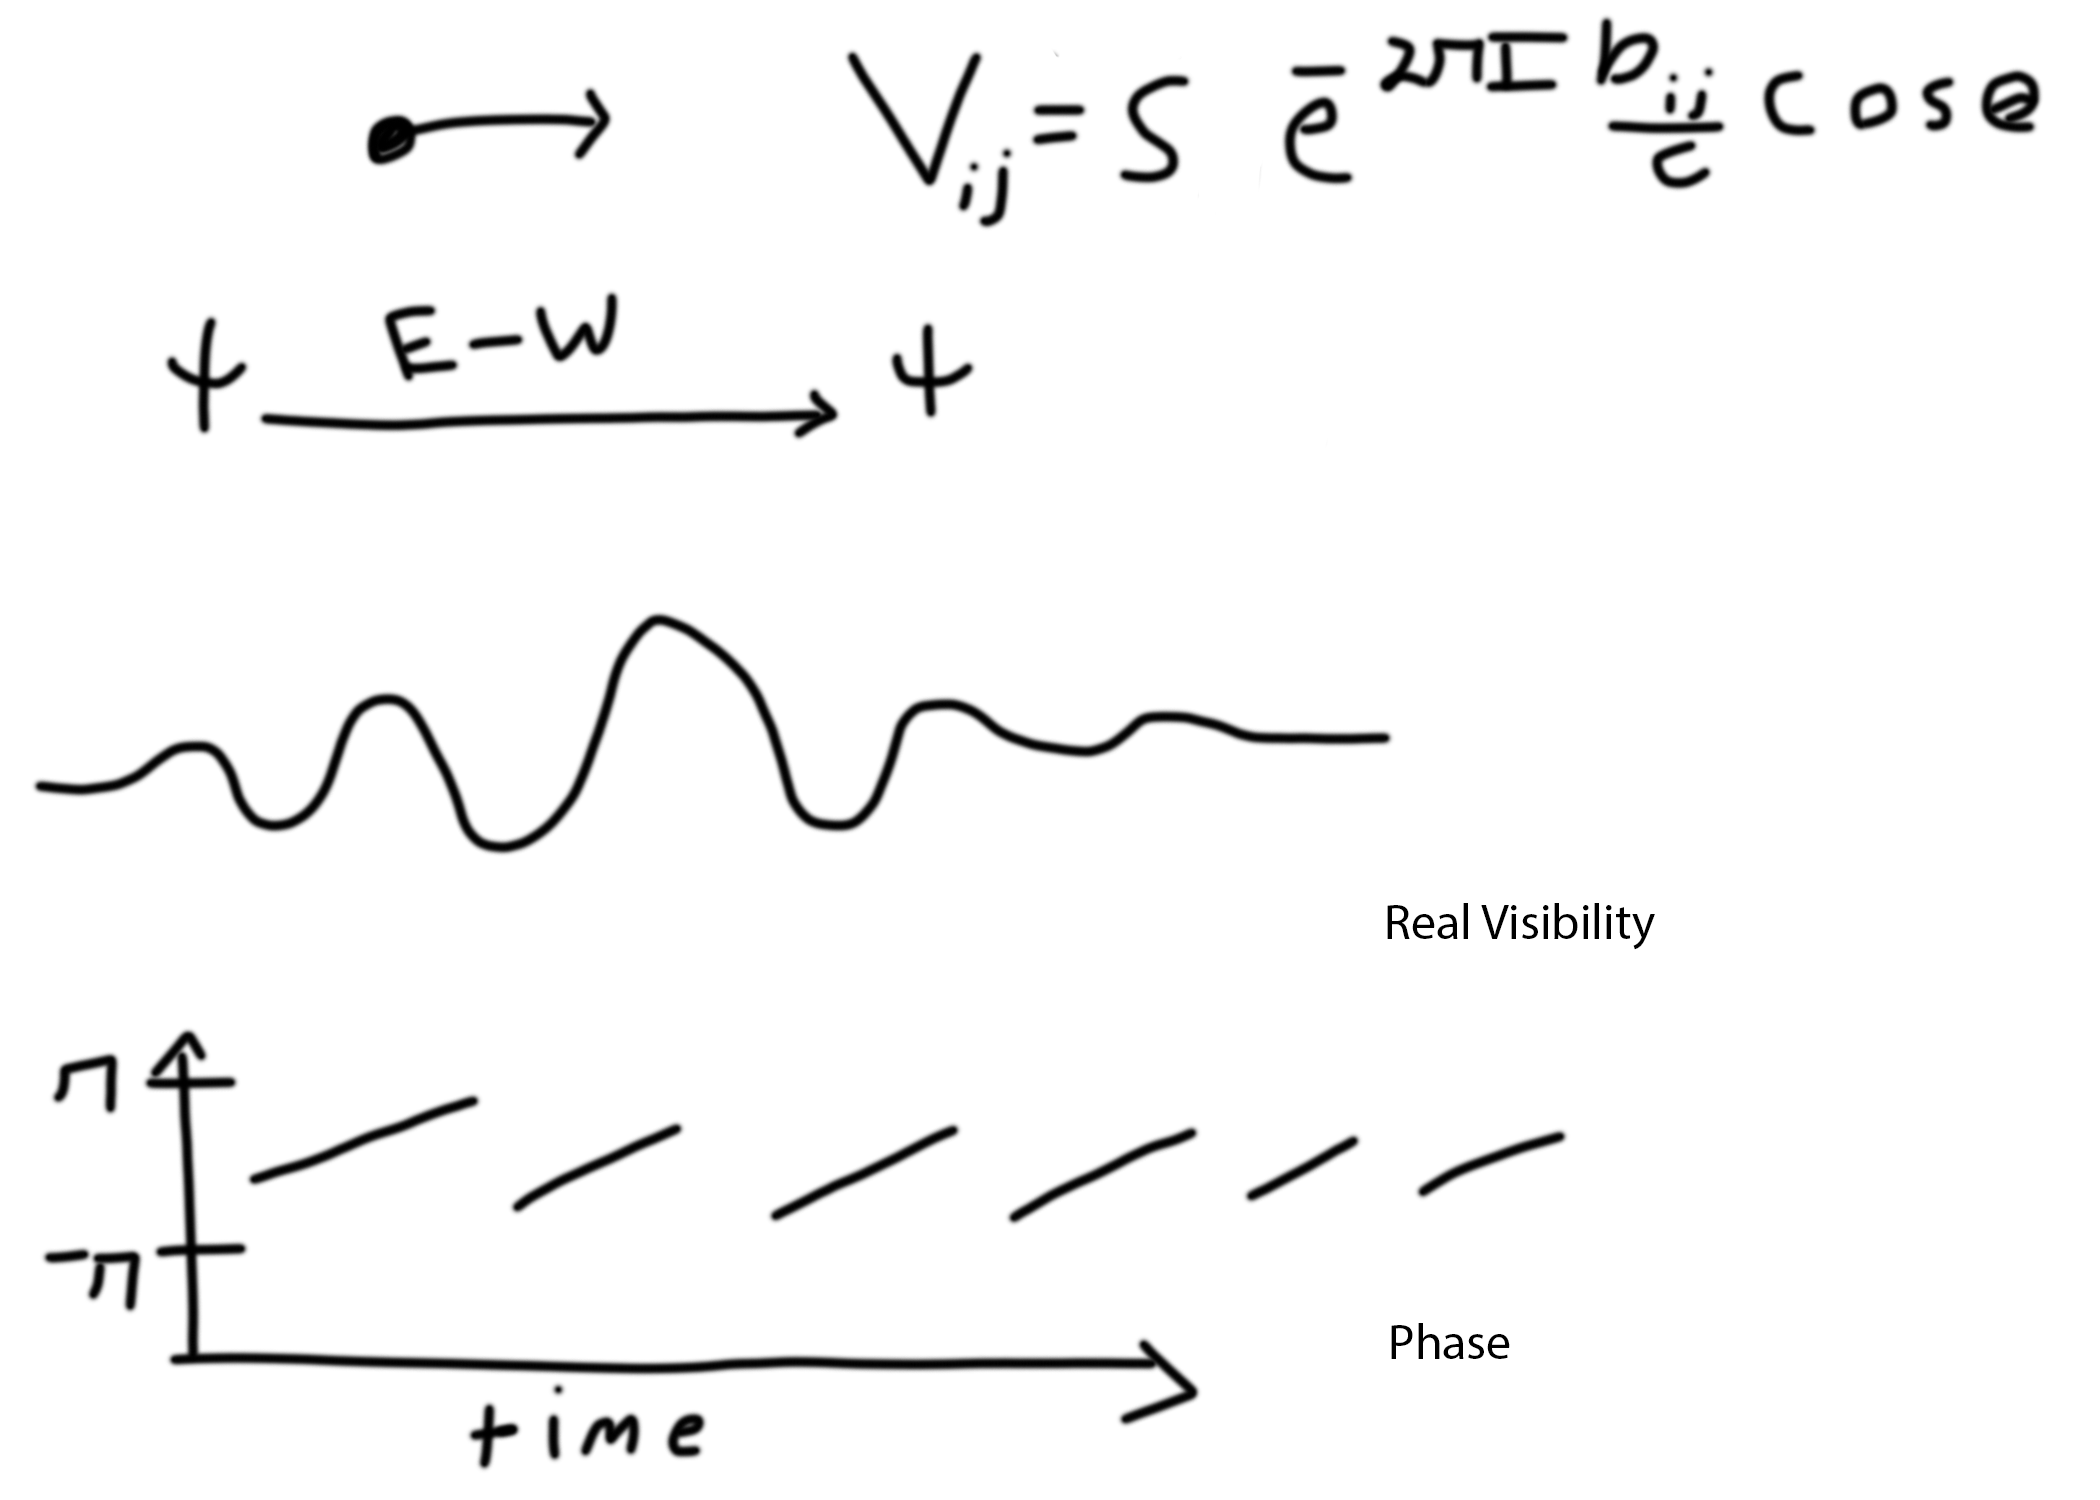 V_ij = S e^-2πI b_ij/c cosθ
E-W
Real Visibility
π
-π
Phase
time